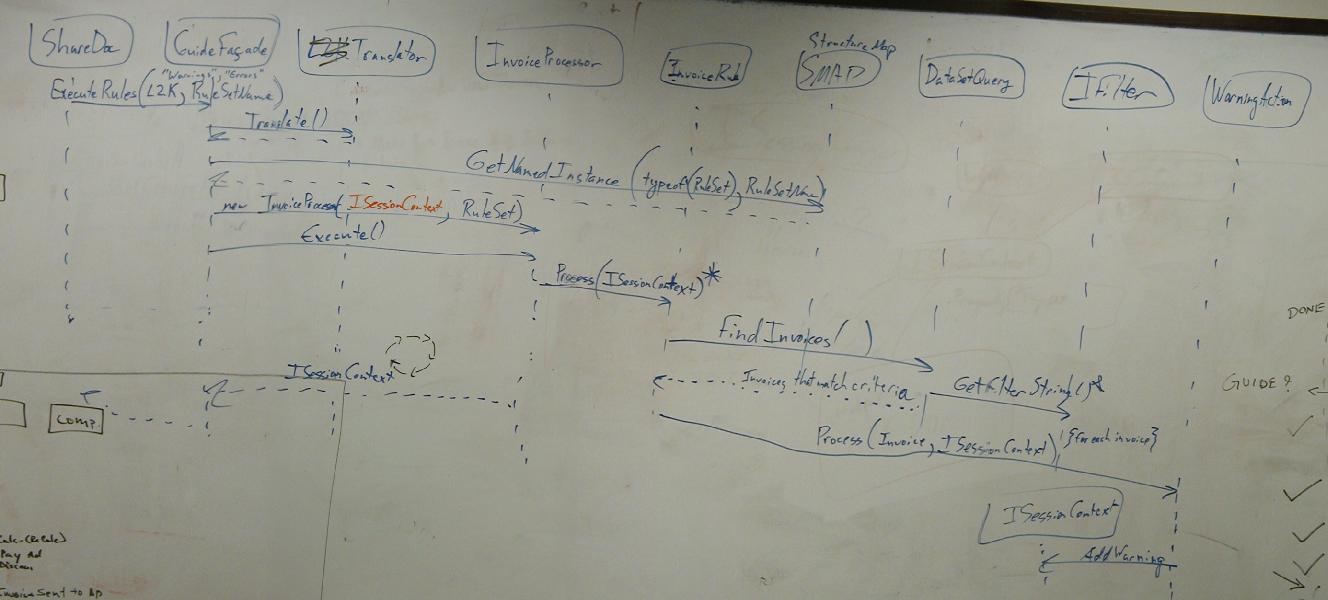 ShareDoc
GuideFaçade
Translator
InvoiceProcessor
InvoiceRule
Structure Map
SMAP
DataSetQuery
IFilter
WarningAction
"Warnings", "Errors"
ExecuteRules(L2K, RuleSetName)
Translate()
GetNamedInstance (typeof(RuleSet), RuleSetName)
new InvoiceProcess(ISessionContext, RuleSet)
Execute()
Process(ISessionContext)*
FindInvoices( )
DONE
ISessionContext
Invoices that match criteria
GetFilterString()*
GUIDE?
Comp.
Process(Invoice, ISessionContext) {for each invoice}
ISessionContext
AddWarning
Pay Ad
Invoice Sent to Ap